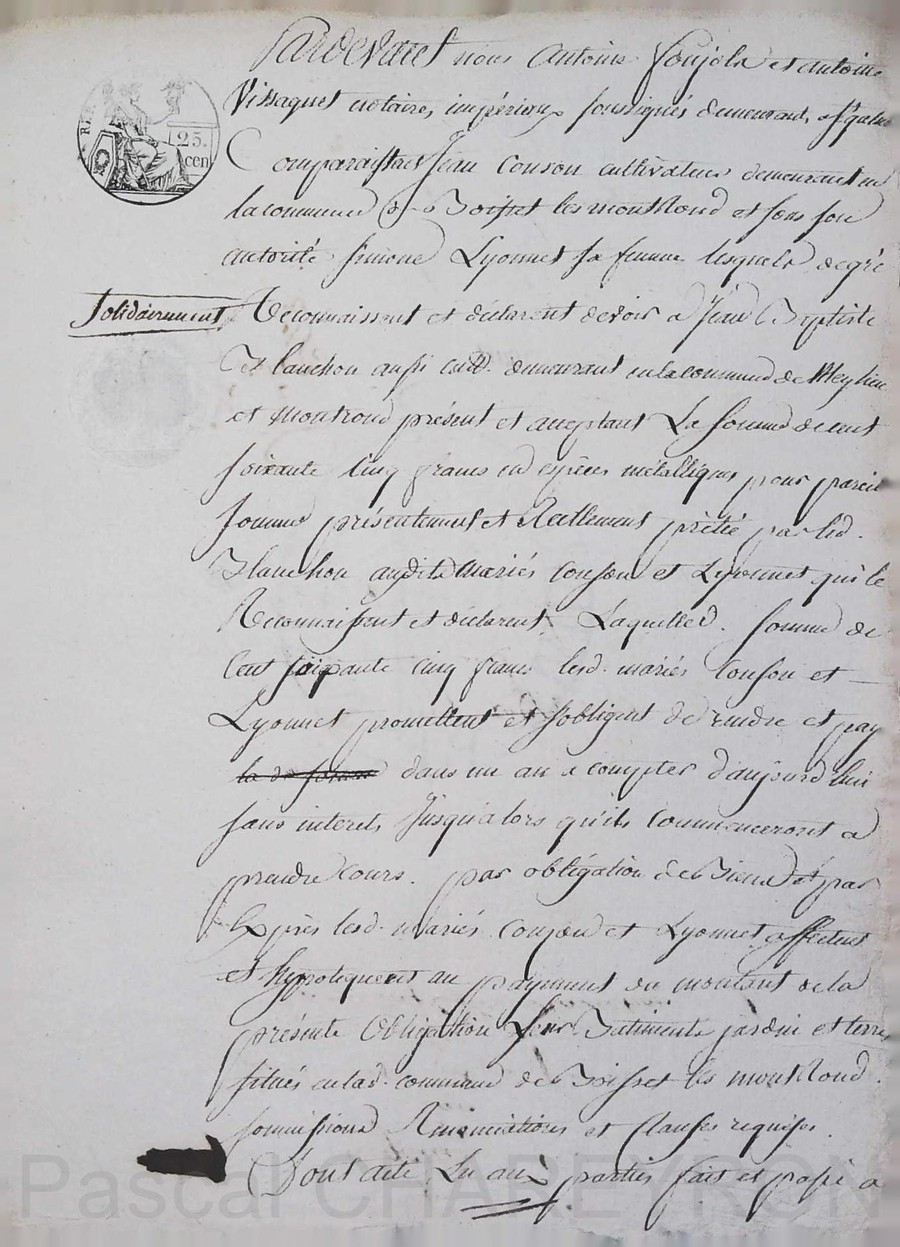 Pardevant nous Antoine Foujols et antoine
Vissaguet notaires impériaux soussignés demeurant
25.
cen
REP
Comparaissant Jean Couson cultivateur demeurant en
la commune de Boisset les montRond et sous son
autorité Simone Lyonnet sa femme lesquels de gré
Solidairement
Reconnaissent et déclarent devoir a Jean Baptiste
Blanchon aussi cult. demeurant en la commune de Meylieu
et Montrond présent et acceptant La somme de cent
soixante cinq francs en espèces métalliques pour pareil
somme présentement et Réellement prêtée par led.
Blanchon audits mariés Couson et Lyonnet qui le
Reconnaissent et déclarent. Laquelled. somme de
Cent soixante cinq francs lesd. mariés Couson et
Lyonnet promettent et s'obligent de rendre et pay
la de somme dans un an a compter d'aujourd'hui
sans interets Jusqu'alors qu'ils Commenceront a
prendre cours. par obligation de Biens et par
Exprès lesd. mariés Couson et Lyonnet affectent
et hypotequent au payment du montant de la
présente Obligation Leur Batiments jardin et terre
situés en lad. commune de Boisset les montRond.
soumissions Renonciations et Clauses requises.
Dont acte Lu aux parties fait et passé a
Pascal CHAREYRON